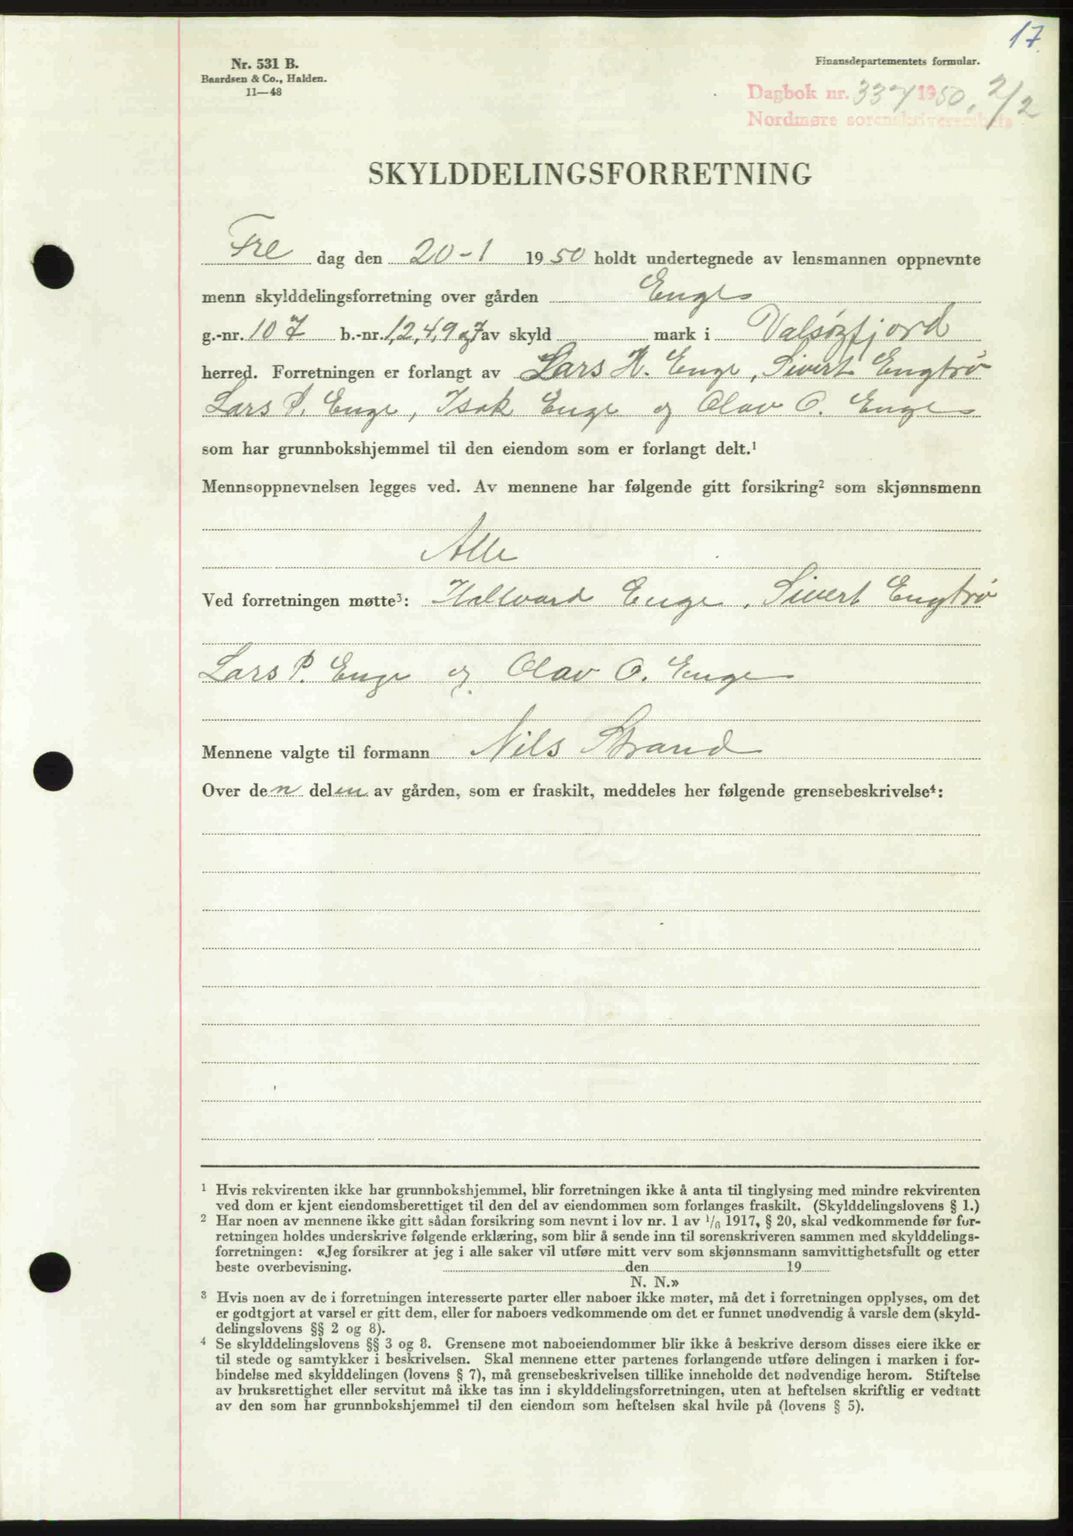 17.
Nr. 531 B.
Baardsen & Co., Halden.
11—48
Finansdepartementets formular.
Dagbok nr. 337 1950, 2/2
Nordmøre sorenskriverembete
SKYLDDELINGSFORRETNING
Fre dag den 20-1 1950 holdt undertegnede av lensmannen oppnevnte
menn skylddelingsforretning over gården Enge
g.-nr. 107 b.-nr. 1,2,4,9 og 7 av skyld mark i Valsøyfjord
herred. Forretningen er forlangt av Lars H. Enge, Sivert Engtrø
Lars P. Enge, Isak Enge og Olav O. Enge
som har grunnbokshjemmel til den eiendom som er forlangt delt.¹
Mennsoppnevnelsen legges ved. Av mennene har følgende gitt forsikring² som skjønnsmenn
Alle
Ved forretningen møtte³: Hallvard Enge, Sivert Engtrø
Lars P. Enge og Olav O. Enge
Mennene valgte til formann Nils Strand
Over den delen av gården, som er fraskilt, meddeles her følgende grensebeskrivelse⁴:
¹ Hvis rekvirenten ikke har grunnbokshjemmel, blir forretningen ikke å anta til tinglysing med mindre rekvirenten
ved dom er kjent eiendomsberettiget til den del av eiendommen som forlanges fraskilt. (Skylddelingslovens § 1.)
² Har noen av mennene ikke gitt sådan forsikring som nevnt i lov nr. 1 av ¹/₆ 1917, § 20, skal vedkommende før for-
retningen holdes underskrive følgende erklæring, som blir å sende inn til sorenskriveren sammen med skylddelings-
forretningen: «Jeg forsikrer at jeg i alle saker vil utføre mitt verv som skjønnsmann samvittighetsfullt og etter
beste overbevisning. den 19
N. N.»
³ Hvis noen av de i forretningen interesserte parter eller naboer ikke møter, må det i forretningen opplyses, om det
er godtgjort at varsel er gitt dem, eller for naboers vedkommende om det er funnet unødvendig å varsle dem (skyld-
delingslovens §§ 2 og 8).
⁴ Se skylddelingslovens §§ 3 og 8. Grensene mot naboeiendommer blir ikke å beskrive dersom disses eiere ikke er
til stede og samtykker i beskrivelsen. Skal mennene etter partenes forlangende utføre delingen i marken i for-
bindelse med skylddelingen (lovens § 7), må grensebeskrivelsen tillike inneholde det nødvendige herom. Stiftelse
av bruksrettighet eller servitut må ikke tas inn i skylddelingsforretningen, uten at heftelsen skriftlig er vedtatt
av den som har grunnbokshjemmel til den eiendom som heftelsen skal hvile på (lovens § 5).